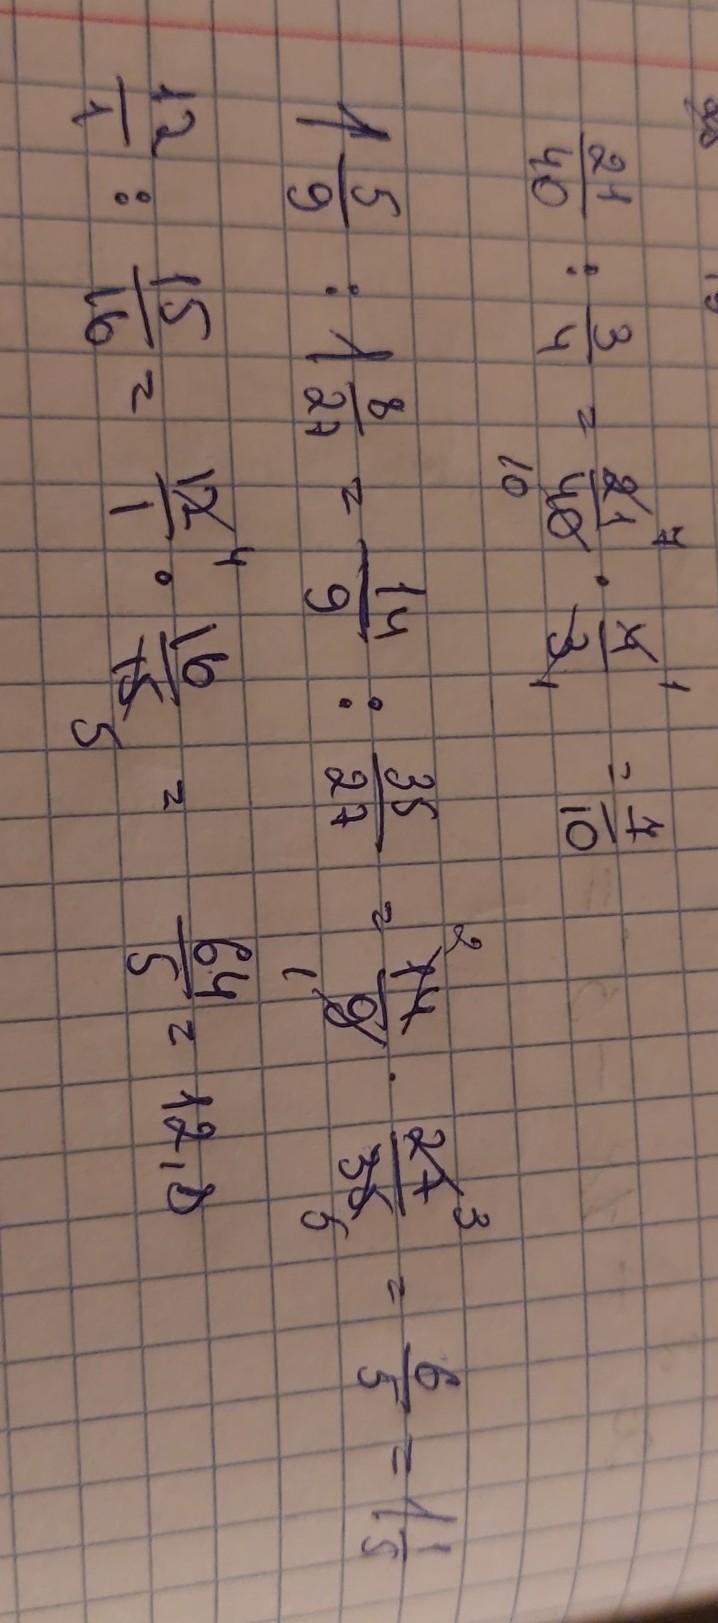 21/40 : 3/4 = 21/40 · 4/3 = 7/10
7 1
10 1
1 5/9 : 1 8/27 = 14/9 : 35/27 = 14/9 · 27/35 = 6/5 = 1 1/5
2 3
1 5
12/1 : 15/16 = 12/1 · 16/15 = 64/5 = 12,8
4
5